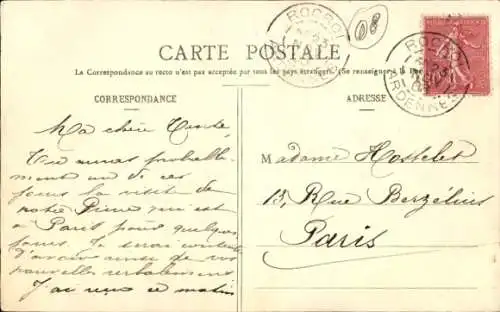 ROCROI
ARDENNES
08
CARTE POSTALE
La Correspondance au recto n'est pas acceptée par tous les pays étrangers. (Se renseigner à la
CORRESPONDANCE
ADRESSE
Ma chère Tante,
Tu auras probable-
ment un de ces
jours la visite de
notre Pierre qui est
à Paris pour quelques
jours. Je serai contente
d'avoir ainsi de vos
nouvelles verbalement
J'ai reçu ce matin
Madame Hostelet
13, Rue Berzélius
Paris